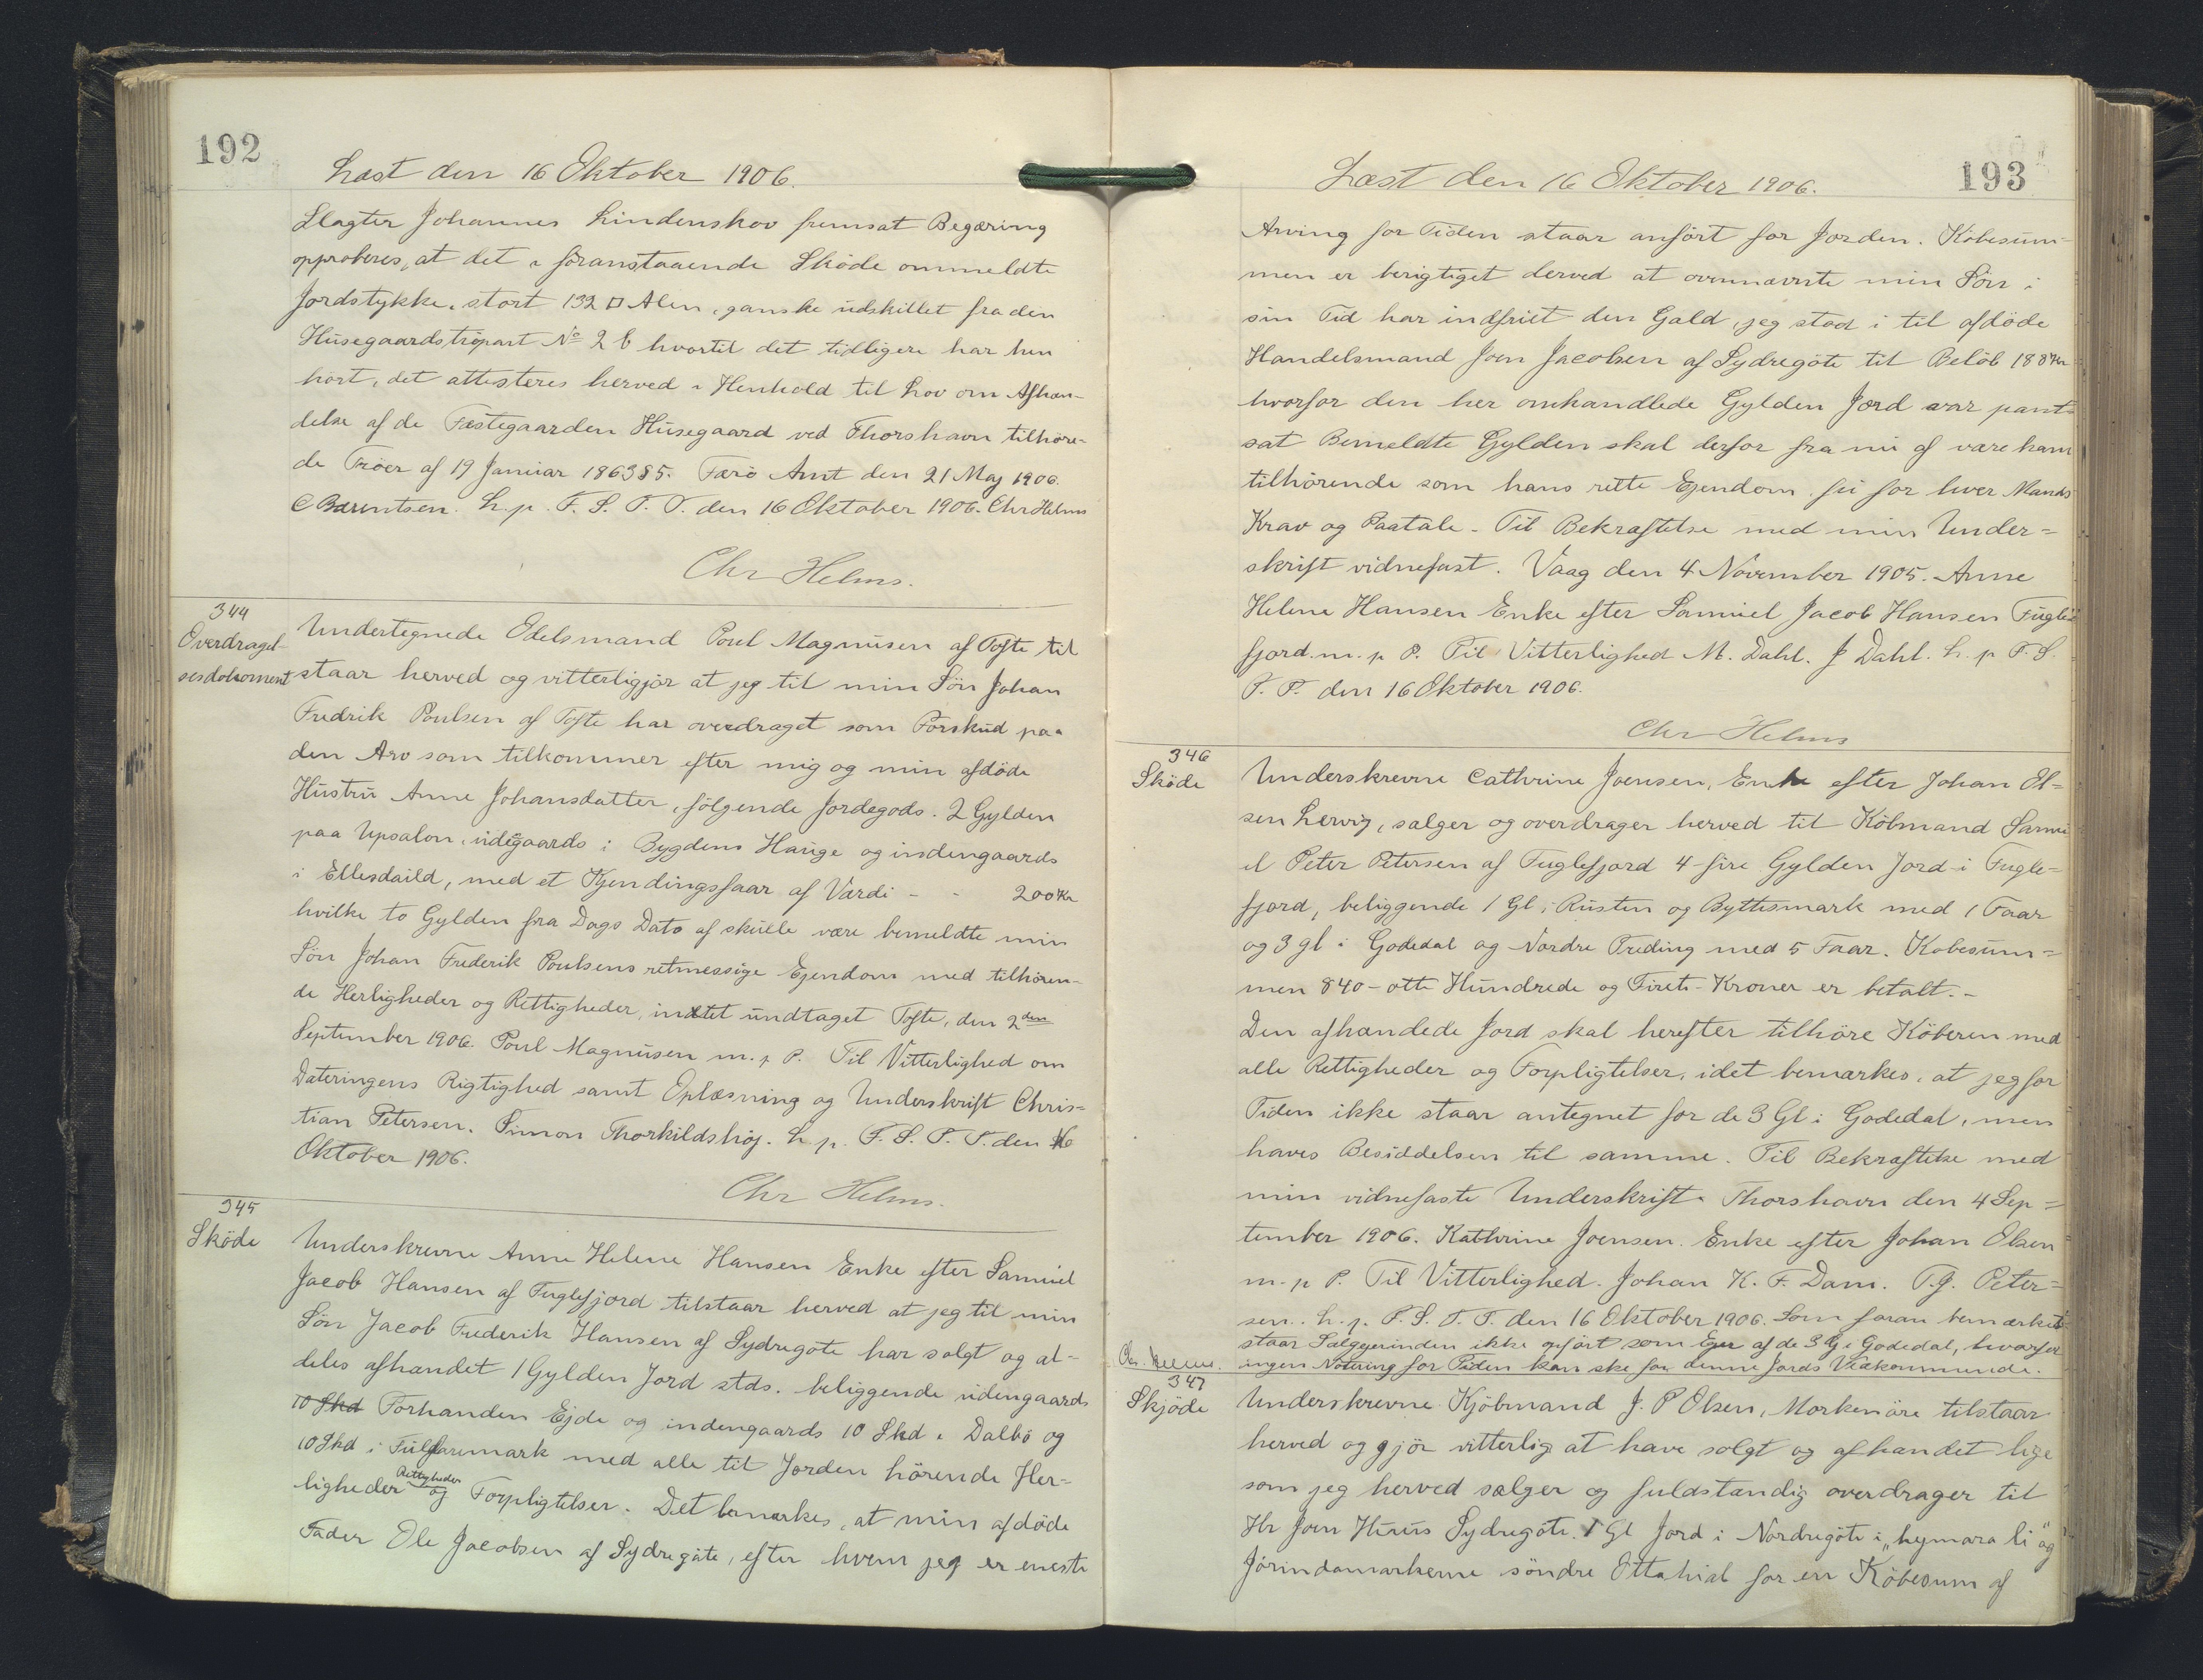 192
Læst den 16 Oktober 1906.
Slagter Johannes Lindenskov fremsat Begæring
approberes, at det i foranstaaende Sköde ommeldte
Jordstykke, stort 132 □ Alen, ganske udskillet fra den
Husegaardströpart No 2 b hvortil det tidligere har hen
hört, det attesteres herved i Henhold til Lov om Afhæn-
delse af de Fæstegaarden Husegaard ved Thorshavn tilhöre-
de Tröer af 19 Januar 1863 § 5. Færö Amt den 21 Maj 1906.
C Bærentsen. L. p. F. S. T. T. den 16 Oktober 1906. Chr Helms
Chr Helms.
344
Overdragel-
sesdokoment
Undertegnede Odelsmand Poul Magnusen af Tofte til
staar herved og vitterligjör at jeg til min Sön Johan
Fredrik Poulsen af Tofte har overdraget som Forskud paa
den Arv som tilkommer efter mig og min afdöde
Hustru Anne Johansdatter, fölgende Jordegods. 2 Gylden
paa Upsalon, udegaards i Bygdens Hauge og indengaards
i Ellesdaild, med et Kjendingsfaar af Værdi - - 200 Kr
hvilke to Gylden fra Dags Dato af skulle være bemeldte min
Sön Johan Frederik Poulsens retmessige Ejendom med tilhören-
de Herligheder og Rettigheder, intet undtaget Tofte, den 2den
September 1906. Poul Magnusen m. p P. Til Vitterlighed om
Dateringens Rigtighed samt Oplæsning og Underskrift Chris-
tian Petersen. Simon Thorkildshöj. L. p. F. S. T. T. den 16
Oktober 1906.
Chr Helms.
345
Sköde
Underskrevne Anne Helene Hansen Enke efter Samuel
Jacob Hansen af Fuglefjord tilstaar herved at jeg til min
Sön Jacob Frederik Hansen af Sydregöte har solgt og al-
deles afhændet 1 Gylden Jord stds. beliggende udengaards
10 Skd Forhanden Ejde og indengaards 10 Skd i Dalbö og
10 Skd i mark med alle til Jorden hörende Her-
ligheder Rettigheder og Forpligtelser. Det bemærkes, at min afdöde
Fader Ole Jacobsen af Sydregöte, efter hvem jeg er eneste
193
Læst den 16 Oktober 1906.
Arving for Tiden staar anfört for Jorden. Köbesum-
men er berigtiget derved at ovennævnte min Sön i
sin Tid har indfriet den Gæld, jeg stod i til afdöde
Handelsmand Joen Jacobsen af Sydregöte til Belöb 188 Kr
hvorfor den her omhandlede Gylden Jord var pant-
sat Bemeldte Gylden skal derfor fra nu af være ham
tilhörende som hans rette Ejendom fri for hver Mands
Krav og Paatale. Til Bekræftelse med min Under=
skrift vidnefast. Vaag den 4 November 1905. Anne
Helene Hansen Enke efter Samuel Jacob Hansen Fugle
fjord. m. p P. Til Vitterlighed M. Dahl. J Dahl. L. p F. S.
T. T. den 16 Oktober 1906.
Chr Helms
346
Sköde
Underskrevne Cathrine Joensen, Enke efter Johan Ol=
sen Lervig, sælger og overdrager herved til Köbmand Samu
el Peter Petersen af Fuglefjord 4-fire Gylden Jord i Fugle=
fjord, beliggende 1 Gl i Rusten og Byttesmark med 1 Faar
og 3 gl i Godedal og Nordre Treding med 5 Faar. Köbesum=
men 840-otte Hundrede og Fireti-Kroner er betalt.-
Den afhændede Jord skal herefter tilhöre Köberen med
alle Rettigheder og Forpligtelser, idet bemærkes, at jeg for
Tiden ikke staar antegnet for de 3 Gl i Godedal, men
haves Besiddelsen til samme. Til Bekræftelse med
min vidnefaste Underskrift. Thorshavn den 4 Sep=
tember 1906. Kathrine Joensen. Enke efter Johan Olsen
m. p P. Til Vitterlighed. Johan K. F. Dam. T. J. Peter=
sen. L. p. F. S. T. T. den 16 Oktober 1906. Som foran bemærket
staar Sælgerinden ikke opfört som Ejer af de 3 G i Godedal, hvorfor
ingen Notering for Tiden kan ske for denne Jords Vedkommende.
Chr. Helms.
347
Skjöde
Underskrevne Kjöbmand J. P Olsen, Morkenöre tilstaar
herved og gjör vitterlig at have solgt og afhændet lige
som jeg herved sælger og fuldstændig overdrager til
Hr Joen Huus Sydregöte. 1 Gl Jord i Nordregöte i „hymara li" og
Jörindamarkerne söndre for en Köbesum af